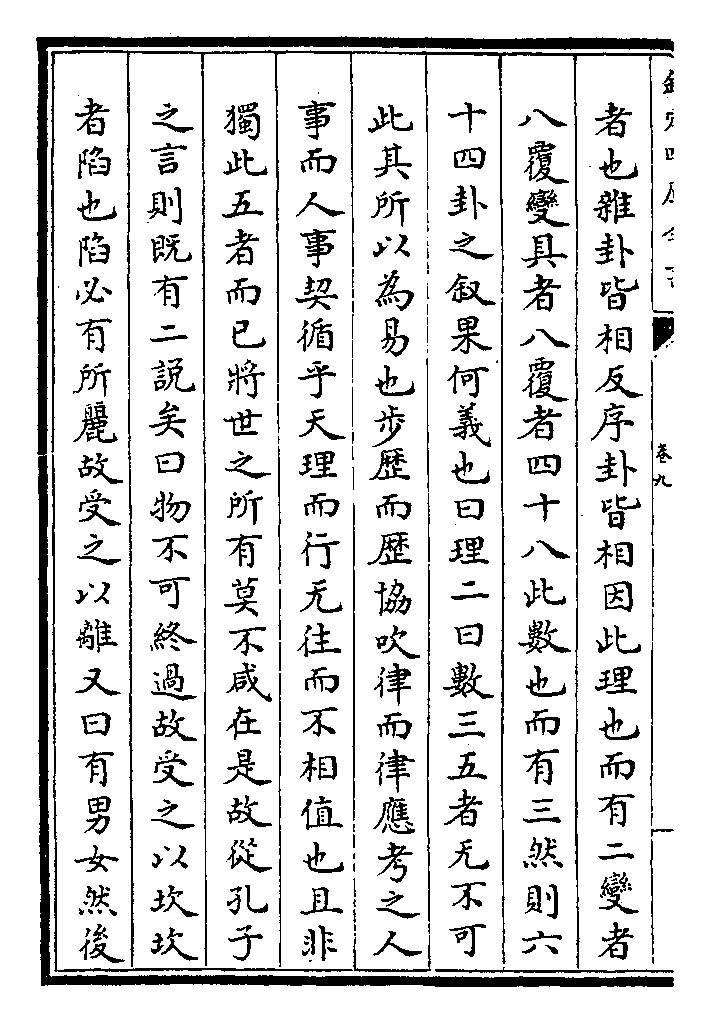 卷九
一
者也雜卦皆相反序卦皆相因此理也而有二變者
八覆變具者八覆者四十八此數也而有三然則六
十四卦之叙果何義也曰理二曰數三五者无不可
此其所以為易也步歴而歴協吹律而律應考之人
事而人事契循乎天理而行无往而不相值也且非
獨此五者而已將世之所有莫不咸在是故從孔子
之言則既有二説矣曰物不可終過故受之以坎坎
者陷也陷必有所麗故受之以離又曰有男女然後